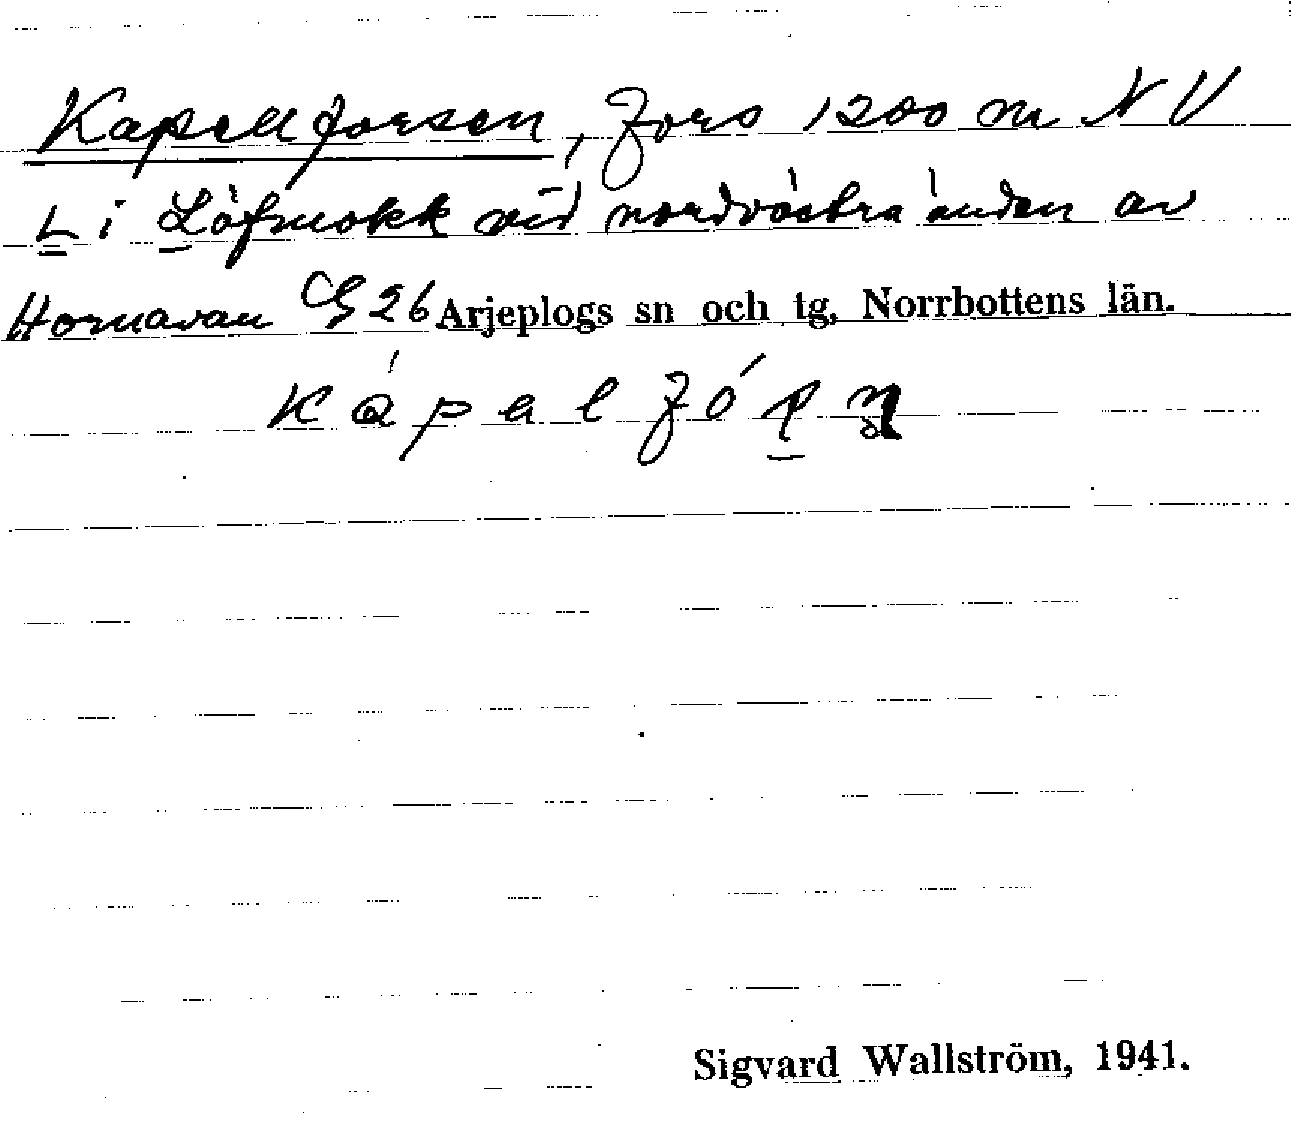 Kapellforsen, fors 1200 m NV
L i Löfmokk vid nordvästra änden av
Hornavan CG 26 Arjeplogs sn och tg, Norrbottens län.
Sigvard Wallström, 1941.